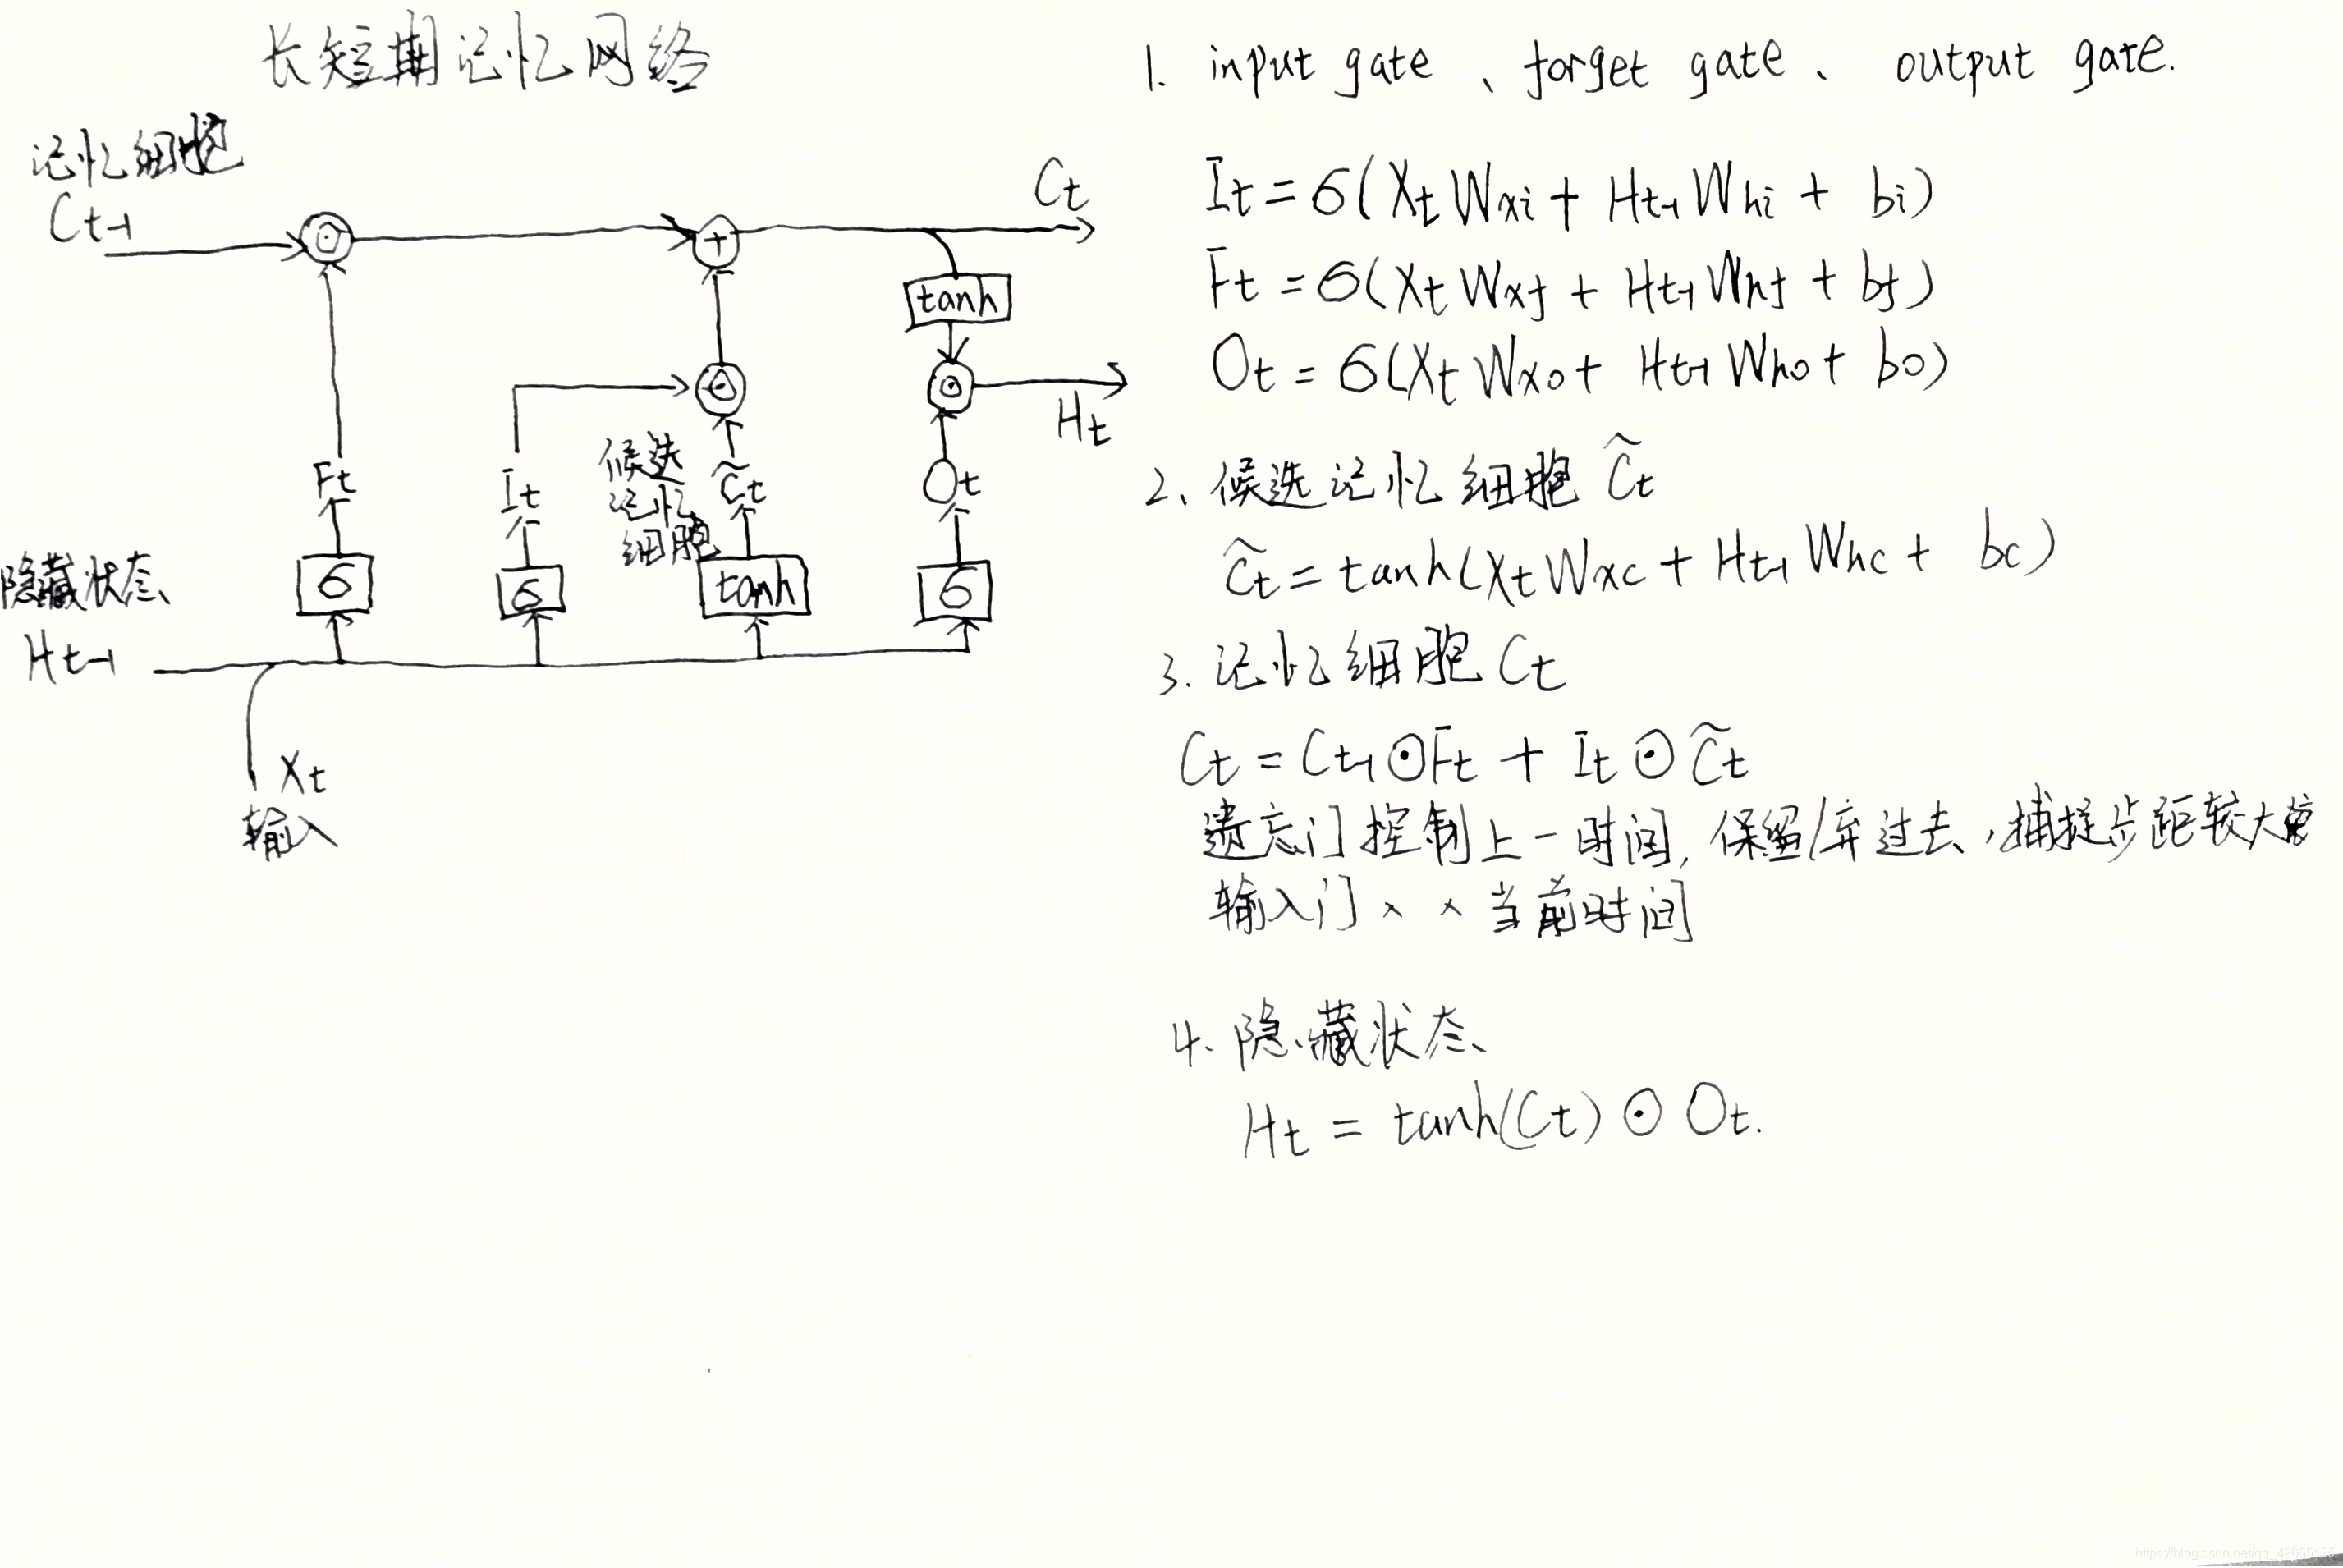 长短期记忆网络
记忆细胞
Ct-1
Ct
tanh
Ht
Ft
It
候选
记忆
细胞
C̃t
Ot
隐藏状态
Ht-1
σ
σ
tanh
σ
Xt
输入
1. input gate、forget gate、output gate.
It = σ(XtWxi + Ht-1Whi + bi)
Ft = σ(XtWxf + Ht-1Whf + bf)
Ot = σ(XtWxo + Ht-1Who + bo)
2、候选记忆细胞 C̃t
C̃t = tanh(XtWxc + Ht-1Whc + bc)
3. 记忆细胞 Ct
Ct = Ct-1 ⊙ Ft + It ⊙ C̃t
遗忘门控制上一时间, 保留/弃过去, 捕捉步距较大
输入门 x x 当前时间
4. 隐藏状态
Ht = tanh(Ct) ⊙ Ot.